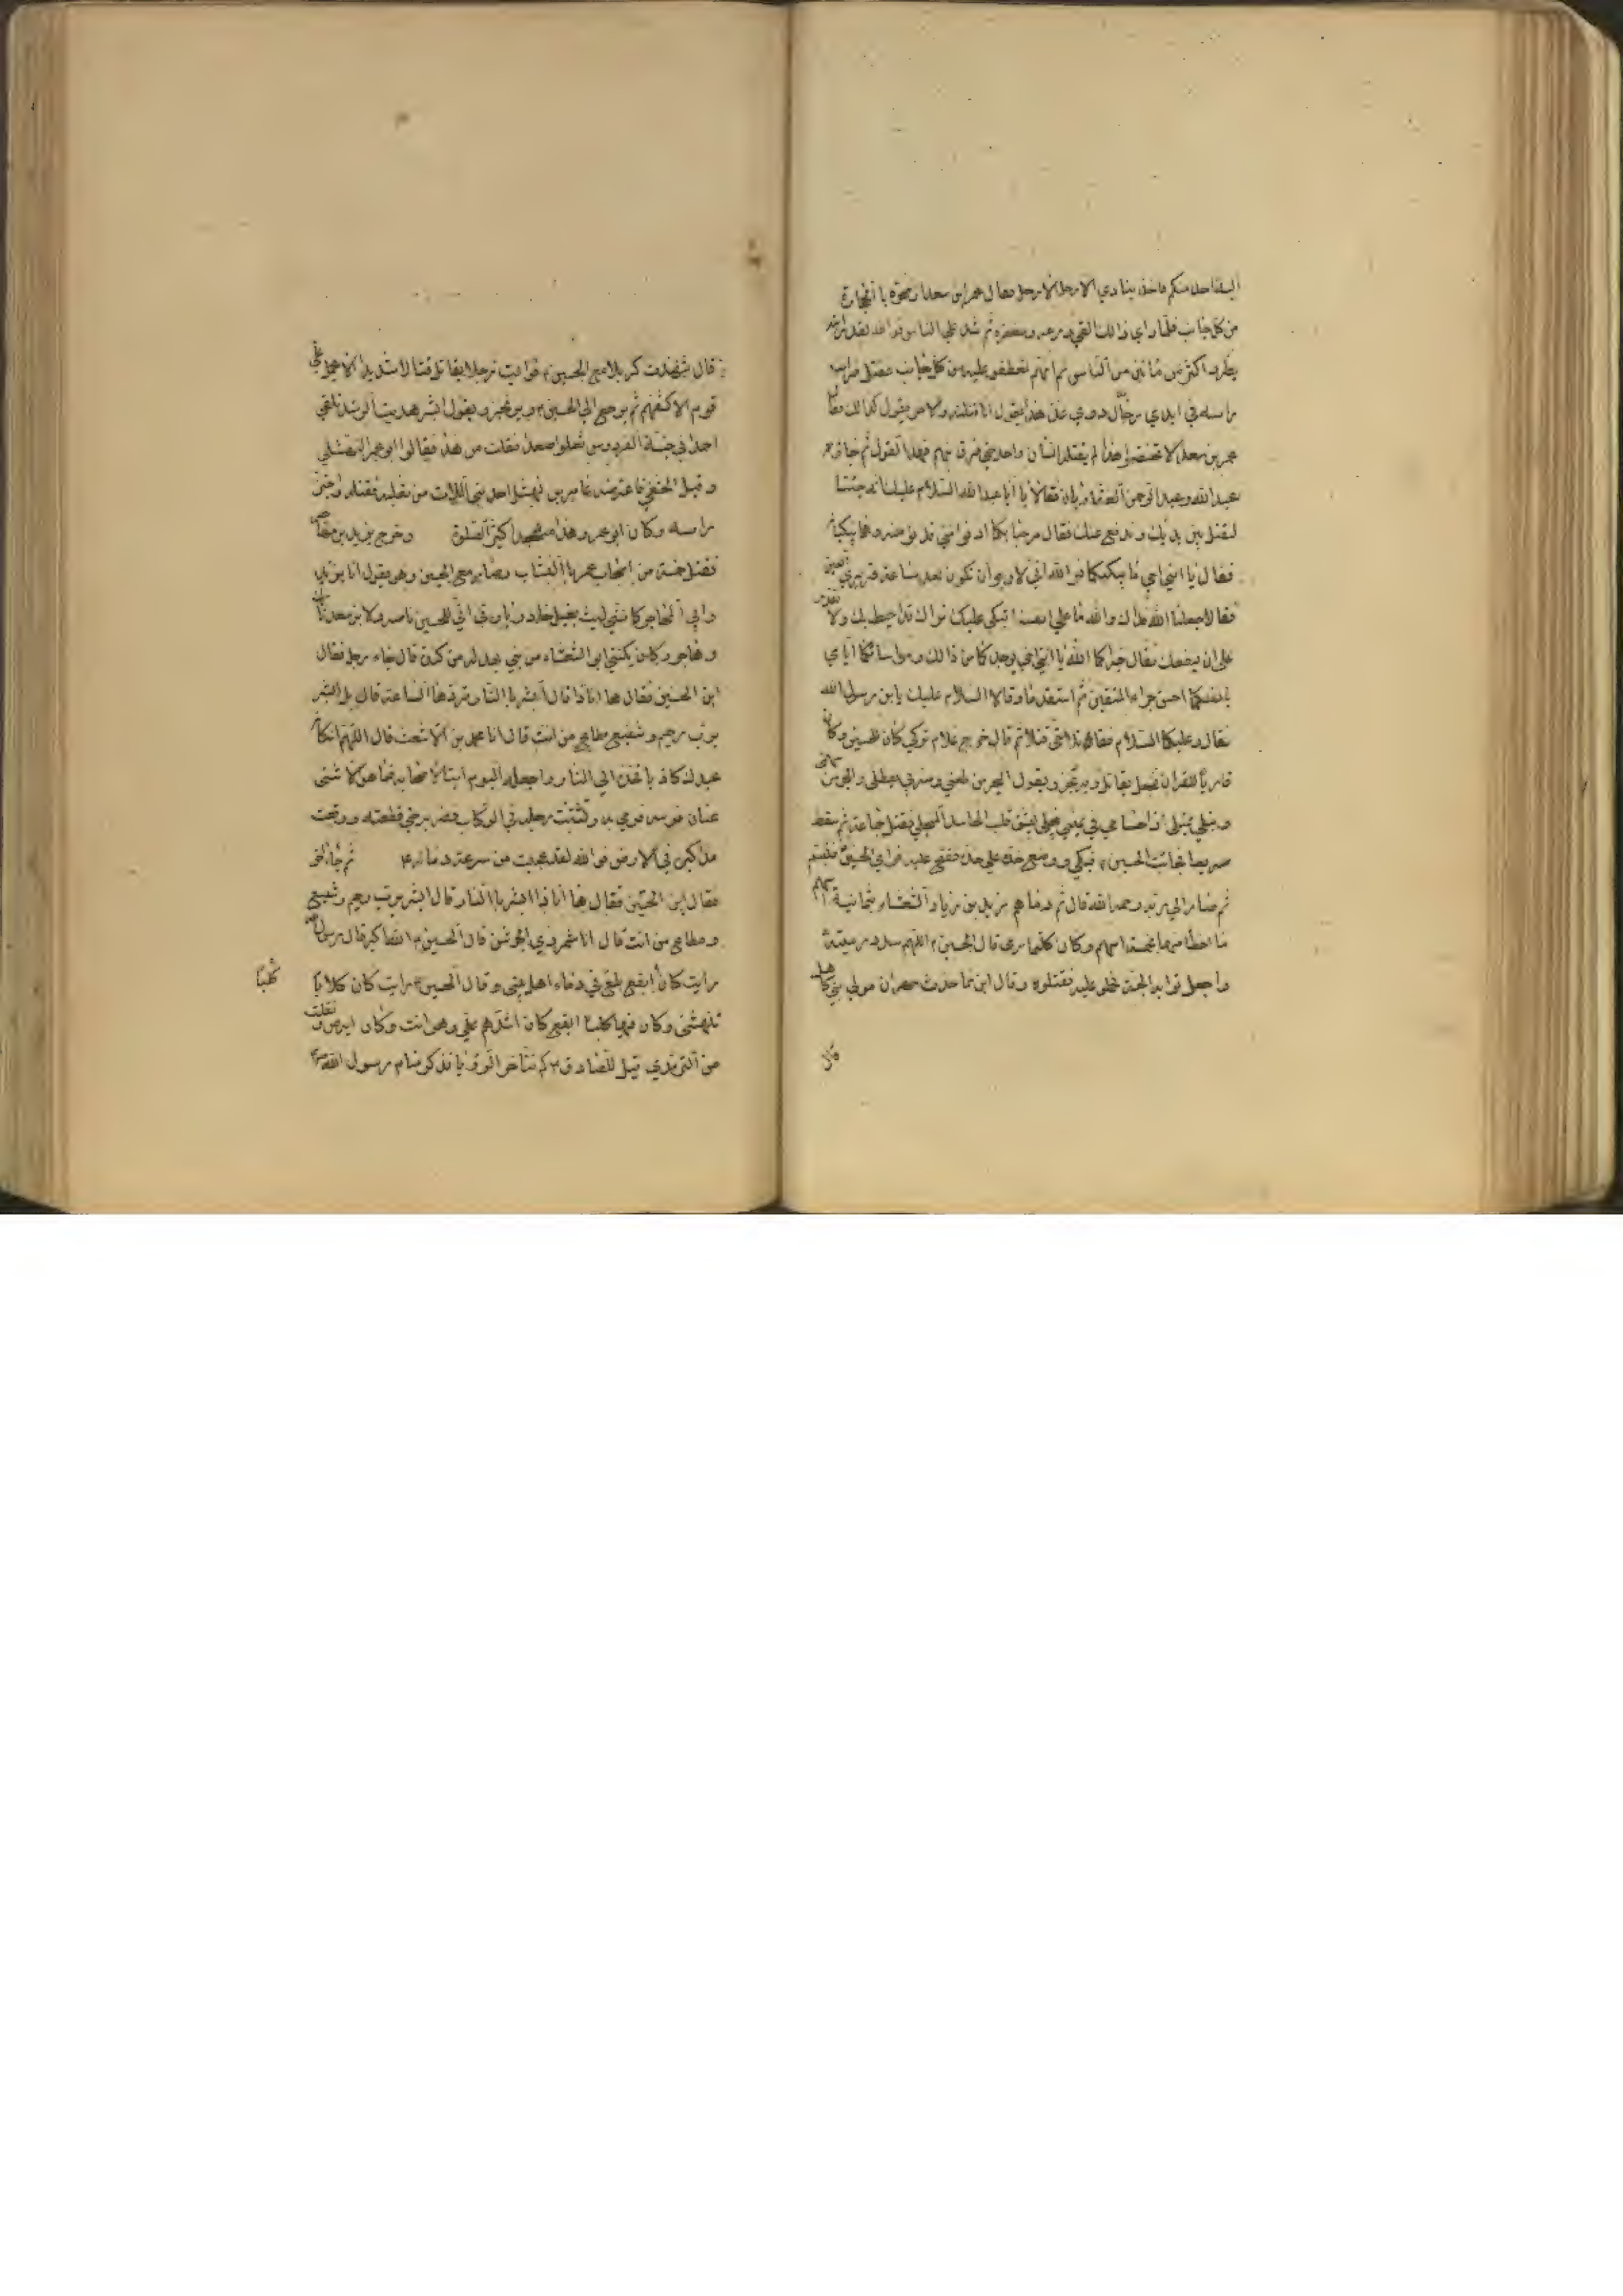 اليه احد منكم فاخذ ينادي الا رجل الا رجل فقال عمر ابن سعد ارضخوه باالحجارة
من كل جانب فلما راي ذالك القي درعه ومغفره ثم شد علي الناس فوالله لقد رايته
يطرد اكثر من مائتين من الناس ثم انهم تعطفو عليه من كل جانب فقتل فرايت
راسه في ايدي رجال ذوي عدة هذا يقول انا قتلته والاخر يقول كذالك فقال
عمر بن سعد لا تختصموا هذا لم يقتله انسان واحد حتي فرق بينهم بهذا القول ثم جائه
عبد الله وعبد الرحمن الغفاريان فقالا يا ابا عبد الله السلام عليك انه جئنا
لنقتل بين يديك وندفع عنك فقال مرحبا بكما ادنوا مني فدنوا منه وهما يبكيان
فقال يا ابني اخي ما يبكيكما فوالله اني لارجو ان تكون بعد ساعة قريري العين
فقالا جعلنا الله فداك والله ما علي انفسنا نبكي ولكن نبكي عليك نراك قد احيط بك ولا نقدر
علي ان ننفعك فقال جزاكما الله يا ابني اخي بوجدكما من ذالك ومواساتكما اياي
بانفسكما احسن جزاء المتقين ثم استقدما وقالا السلام عليك يا بن رسول الله
فقال وعليكما السلام فقاتلا حتي قتلا ثم قال خرج غلام تركي كان للحسين وكان
قاريا للقران فجعل يقاتل ويرتجز ويقول البحر من طعني وضربي يصطلي والجو من سهمي
ونبلي يمتلي اذا حسامي في يميني ينجلي ينشق قلب الحاسد المبجلي فقتل جماعة ثم سقط
صريعا فجائه الحسين فبكي ووضع خده علي خده ففتح عينه فراي الحسين فتبسم
ثم صار الي ربه رحمه الله قال ثم رماهم يزيد بن زياد الشعثاء بثمانية اسهم
ما اخطا منها بخمسة اسهم وكان كلما رمي قال الحسين اللهم سدد رميته
واجعل ثوابه الجنة فحملو عليه فقتلوه وقال ابن نما حدث مهران مولي بني كاهل
قال
قال شهدت كربلا مع الحسين فرايت رجلا يقاتل قتالا شديدا لا يحمل علي
قوم الا كشفهم ثم يرجع الي الحسين ويرتجز ويقول ابشر هديت الرشد تلقي
احمدا في جنة الفردوس تعلوا صعدا فقلت من هذا فقالوا ابو عمر النهشلي
وقيل الخثعمي فاعترضه عامر بن نهشل احد بني اللات من ثعلبة فقتله واجتز
راسه وكان ابو عمر وهذا متهجدا كثير الصلوة وخرج يزيد بن مهاجر
فقتل خمسة من اصحاب عمر باالنشاب وصار مع الحسين وهو يقول انا يزيد
وابي المهاجر كانني ليث بغيل خادر يا رب اني للحسين ناصر ولابن سعد تارك
وهاجر وكان يكني ابي الشعثاء من بني بهدلة من كندة قال فجاء رجل فقال
اين الحسين فقال ها انا ذا قال ابشر باالنار تردها الساعة قال بل ابشر
برب رحيم وشفيع مطاع من انت قال انا محمد بن الاشعث قال اللهم ان كان
عبدك كاذبا فخذه الي النار واجعله اليوم اية لاصحابه فما هو الا ثني
عنان فرسه فرمي به وثبتت رجله في الركاب فضربه حتي قطعه ووقعت
مذاكيره في الارض فوالله لقد عجبت من سرعة دعائه ثم جاء اخر
فقال اين الحسين فقال ها انا ذا ابشر باالنار قال ابشر برب رحيم وشفيع
ومطاع من انت قال انا شمر ذي الجوشن قال الحسين الله اكبر قال رسول الله
رايت كان كلبا ابقع يلغ في دماء اهل بيتي وقال الحسين رايت كان كلابا
تنهشني وكان فيها كلبا ابقع كان اشدهم علي وهو انت وكان ابرص ونقلت
من الترمذي قيل للصادق كم تتاخر الرؤيا فذكر منام رسول الله